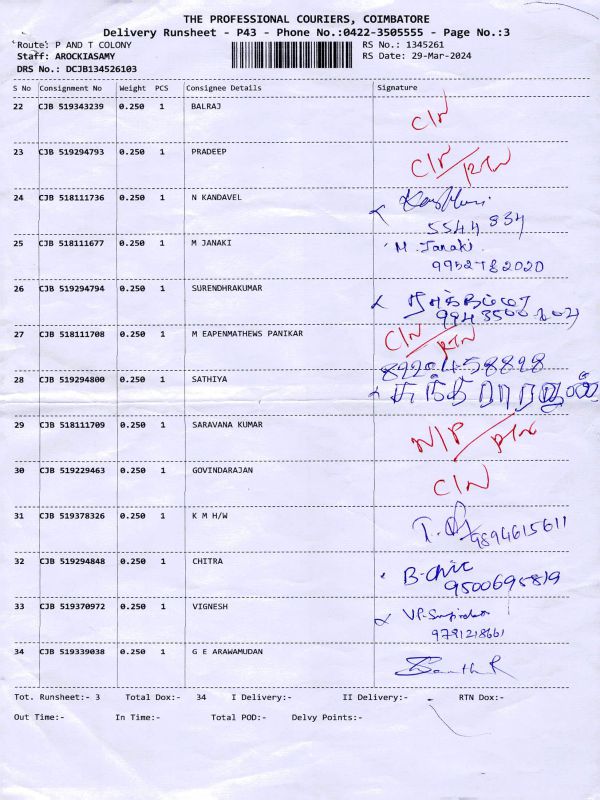 THE PROFESSIONAL COURIERS, COIMBATORE
Delivery Runsheet - P43 - Phone No.:0422-3505555 - Page No.:3
Route: P AND T COLONY RS No.: 1345261
Staff: AROCKIASAMY RS Date: 29-Mar-2024
DRS No.: DCJB134526103
S No Consignment No Weight PCS Consignee Details Signature
22 CJB 519343239 0.250 1 BALRAJ C/N
23 CJB 519294793 0.250 1 PRADEEP C/N / RTN
24 CJB 518111736 0.250 1 N KANDAVEL
5544 834
25 CJB 518111677 0.250 1 M JANAKI M. Janaki
9952782020
26 CJB 519294794 0.250 1 SURENDHRAKUMAR
27 CJB 518111708 0.250 1 M EAPENMATHEWS PANIKAR C/N / RTN
28 CJB 519294800 0.250 1 SATHIYA
29 CJB 518111709 0.250 1 SARAVANA KUMAR N/P / RTN
30 CJB 519229463 0.250 1 GOVINDARAJAN C/N
31 CJB 519378326 0.250 1 K M H/W
9894615611
32 CJB 519294848 0.250 1 CHITRA
9500695819
33 CJB 519370972 0.250 1 VIGNESH
9791218661
34 CJB 519339038 0.250 1 G E ARAWAMUDAN
Tot. Runsheet:- 3 Total Dox:- 34 I Delivery:- II Delivery:- RTN Dox:-
Out Time:- In Time:- Total POD:- Delvy Points:-